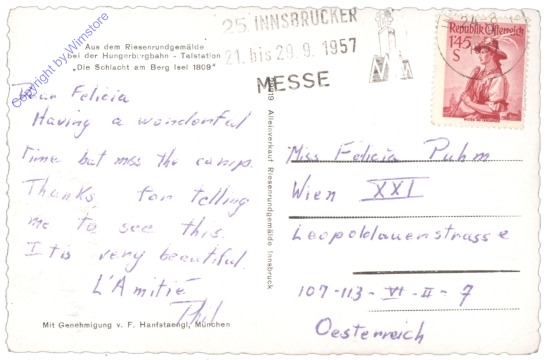 Copyright by Wimstore
Aus dem Riesenrundgemälde
bei der Hungerburgbahn - Talstation
„Die Schlacht am Berg Isel 1809"
25. INNSBRUCKER
21. bis 29. 9. 1957
MESSE
Republik Österreich
1.45
S
Dear Felicia
Having a wonderful
time but miss the camp.
Thanks, for telling
me to see this.
It is very beautiful.
L'Amitié
Phil
Mit Genehmigung v. F. Hanfstaengl, München
Alleinverkauf Riesenrundgemälde Innsbruck
Miss Felicia Puhm
Wien XXI
Leopoldauerstrasse
107-113-VI-II-7
Oesterreich